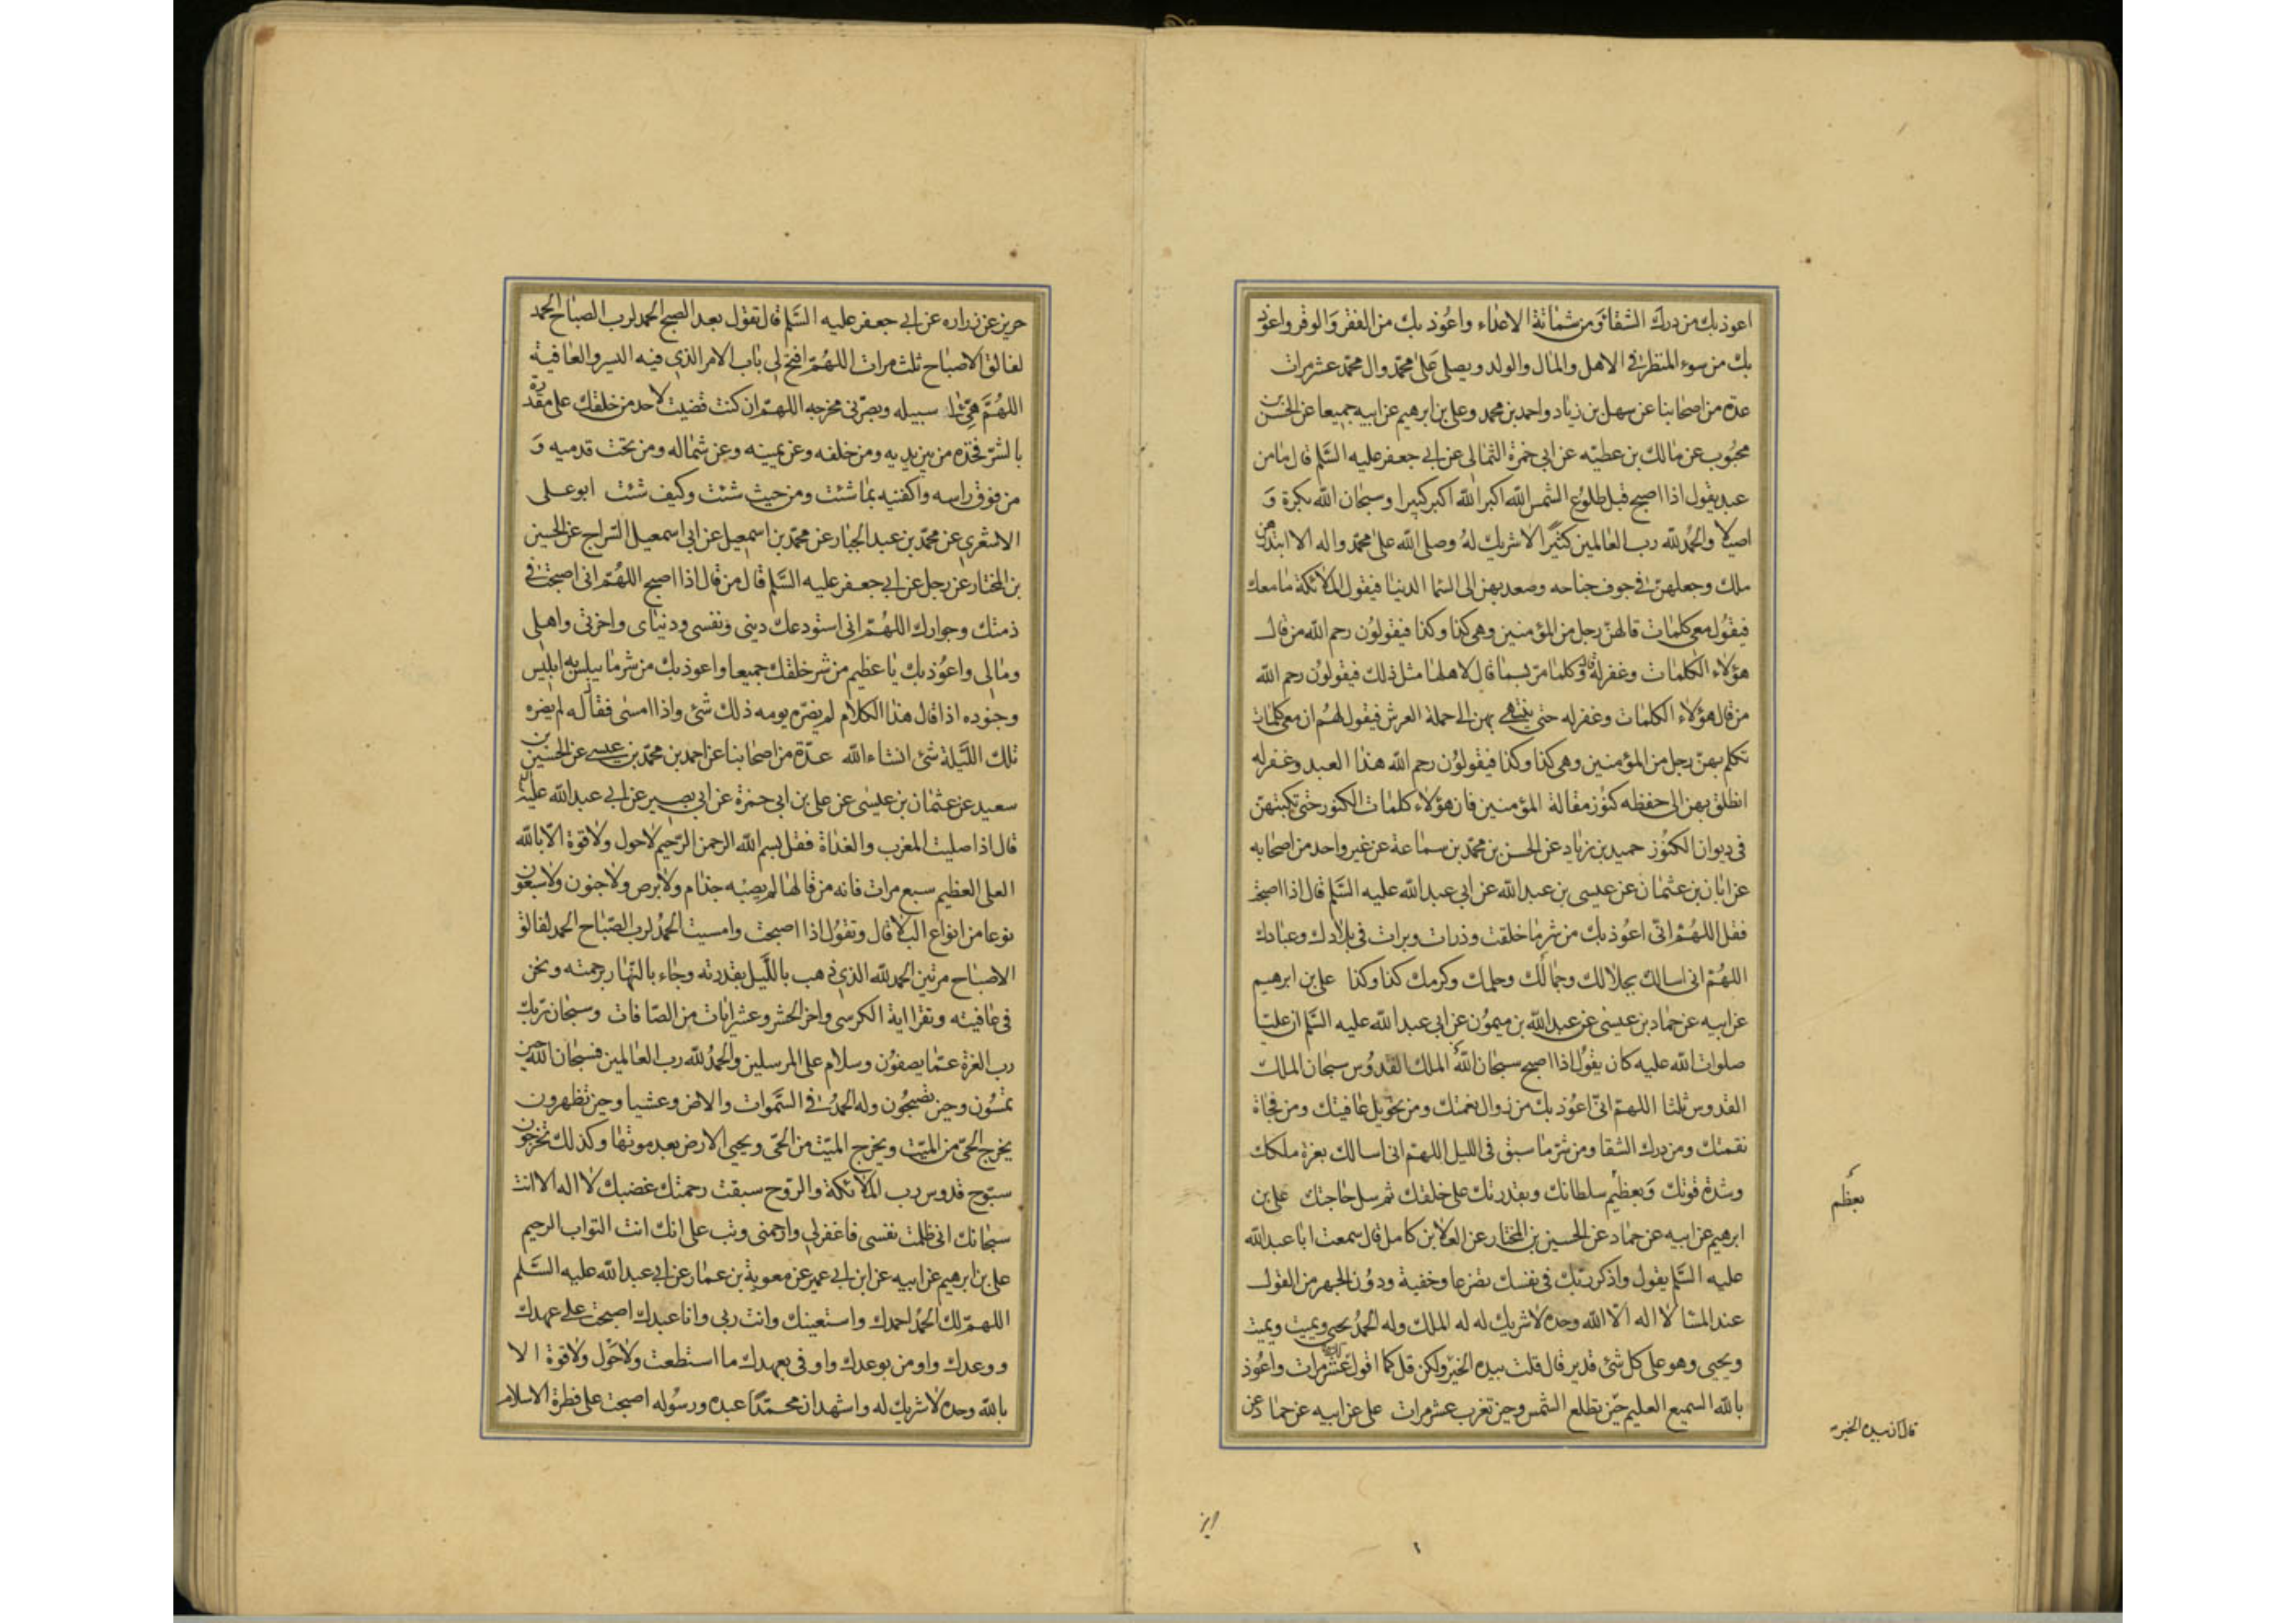 اعوذ بك من درك الشقا ومن شماتة الاعداء واعوذ بك من الفقر والوقر واعوذ
بك من سوء المنظر فى الاهل والمال والولد ويصلى على محمد وال محمد عشر مرات
عدة من اصحابنا عن سهل بن زياد واحمد بن محمد وعلى بن ابرهيم عن ابيه جميعا عن الحسن بن
محبوب عن مالك بن عطيه عن ابى حمزة الثمالى عن ابى جعفر عليه السلم قال ما من
عبد يقول اذا اصبح قبل طلوع الشمس الله اكبر الله اكبر كبيرا وسبحان الله بكرة و
اصيلا والحمد لله رب العالمين كثيرا لا شريك له وصلى الله على محمد واله الا ابتدرهن
ملك وجعلهن فى جوف جناحه وصعد بهن الى السما الدنيا فيقول الملائكة ما معك
فيقول معى كلمات قالهن رجل من المؤمنين وهى كذا وكذا فيقولون رحم الله من قال
هؤلاء الكلمات وغفر له قال وكلما مر بسما قال لاهلها مثل ذلك فيقولون رحم الله
من قال هؤلاء الكلمات وغفر له حتى ينتهى بهن الى حملة العرش فيقول لهم ان معى كلمات
تكلم بهن رجل من المؤمنين وهى كذا وكذا فيقولون رحم الله هذا العبد وغفر له
انطلق بهن الى حفظه كنوز مقالة المؤمنين فان هؤلاء كلمات الكنوز حتى تكتبهن
فى ديوان الكنوز حميد بن زياد عن الحسن بن محمد بن سماعة عن غير واحد من اصحابه
عن ابان بن عثمان عن عيسى بن عبد الله عن ابى عبد الله عليه السلم قال اذا اصبحت
فقل اللهم انى اعوذ بك من شر ما خلقت وذرات وبرات فى بلادك وعبادك
اللهم انى اسالك بجلالك وجمالك وحلمك وكرمك كذا وكذا على بن ابرهيم
عن ابيه عن حماد بن عيسى عن عبد الله بن ميمون عن ابى عبد الله عليه السلم ان عليا
صلوات الله عليه كان يقول اذا اصبح سبحان الله الملك القدوس سبحان الملك
القدوس ثلثا اللهم انى اعوذ بك من زوال نعمتك ومن تحويل عافيتك ومن فجاة
نقمتك ومن درك الشقا ومن شر ما سبق فى الليل اللهم انى اسالك بعزة ملكك
وشدة قوتك وبعظيم سلطانك وبقدرتك على خلقك ثم سل حاجتك على بن
ابرهيم عن ابيه عن حماد عن الحسين بن المختار عن العلا بن كامل قال سمعت ابا عبد الله
عليه السلم يقول واذكر ربك فى نفسك تضرعا وخفية ودون الجهر من القول
عند المسا لا اله الا الله وحده لا شريك له له الملك وله الحمد يحيى ويميت ويميت
ويحيى وهو على كل شئ قدير قال قلت بيده الخير ولكن قل كما اقول عشر مرات واعوذ
بالله السميع العليم حين تطلع الشمس وحين تغرب عشر مرات على عن ابيه عن حماد عن
بعظم
قال ان بيده الخير
حريز عن زراره عن ابى جعفر عليه السلم قال تقول بعد الصبح الحمد لرب الصباح الحمد
لفالق الاصباح ثلث مرات اللهم افتح لى باب الامر الذى فيه اليسر والعافية
اللهم هيئ لى سبيله وبصرنى مخرجه اللهم ان كنت قضيت لاحد من خلقك على مقدرة
بالشر فخذه من بين يديه ومن خلفه وعن يمينه وعن شماله ومن تحت قدميه و
من فوق راسه واكفنيه بما شئت ومن حيث شئت وكيف شئت ابو على
الاشعرى عن محمد بن عبد الجبار عن محمد بن اسمعيل عن ابى اسمعيل السراج عن الحسين
بن المختار عن رجل عن ابى جعفر عليه السلم قال من قال اذا اصبح اللهم انى اصبحت فى
ذمتك وجوارك اللهم انى استودعك دينى ونفسى ودنياى واخرتى واهلى
ومالى واعوذ بك يا عظيم من شر خلقك جميعا واعوذ بك من شر ما يبلس به ابليس
وجنوده اذا قال هذا الكلام لم يضره يومه ذلك شئ واذا امسى فقاله لم يضره
تلك الليلة شئ انشاء الله عدة من اصحابنا عن احمد بن محمد بن عيسى عن الحسين بن
سعيد عن عثمان بن عيسى عن على بن ابى حمزة عن ابى بصير عن ابى عبد الله عليه
قال اذا صليت المغرب والغداة فقل بسم الله الرحمن الرحيم لا حول ولا قوة الا بالله
العلى العظيم سبع مرات فانه من قالها لم يصبه جذام ولا برص ولا جنون ولا سبعون
نوعا من انواع البلا قال وتقول اذا اصبحت وامسيت الحمد لرب الصباح الحمد لفالق
الاصباح مرتين الحمد لله الذى ذهب بالليل بقدرته وجاء بالنهار برحمته ونحن
فى عافيته وتقرا اية الكرسى واخر الحشر وعشر ايات من الصافات وسبحان ربك
رب العزة عما يصفون وسلام على المرسلين والحمد لله رب العالمين فسبحان الله حين
تمسون وحين تصبحون وله الحمد فى السموات والارض وعشيا وحين تظهرون
يخرج الحى من الميت ويخرج الميت من الحى ويحيى الارض بعد موتها وكذلك تخرجون
سبوح قدوس رب الملائكة والروح سبقت رحمتك غضبك لا اله الا انت
سبحانك انى ظلمت نفسى فاغفر لى وارحمنى وتب على انك انت التواب الرحيم
على بن ابرهيم عن ابيه عن ابن ابى عمير عن معوية بن عمار عن ابى عبد الله عليه السلم
اللهم لك الحمد احمدك واستعينك وانت ربى وانا عبدك اصبحت على عهدك
ووعدك واومن بوعدك واوفى بعهدك ما استطعت ولا حول ولا قوة الا
بالله وحده لا شريك له واشهد ان محمدا عبده ورسوله اصبحت على فطرة الاسلام